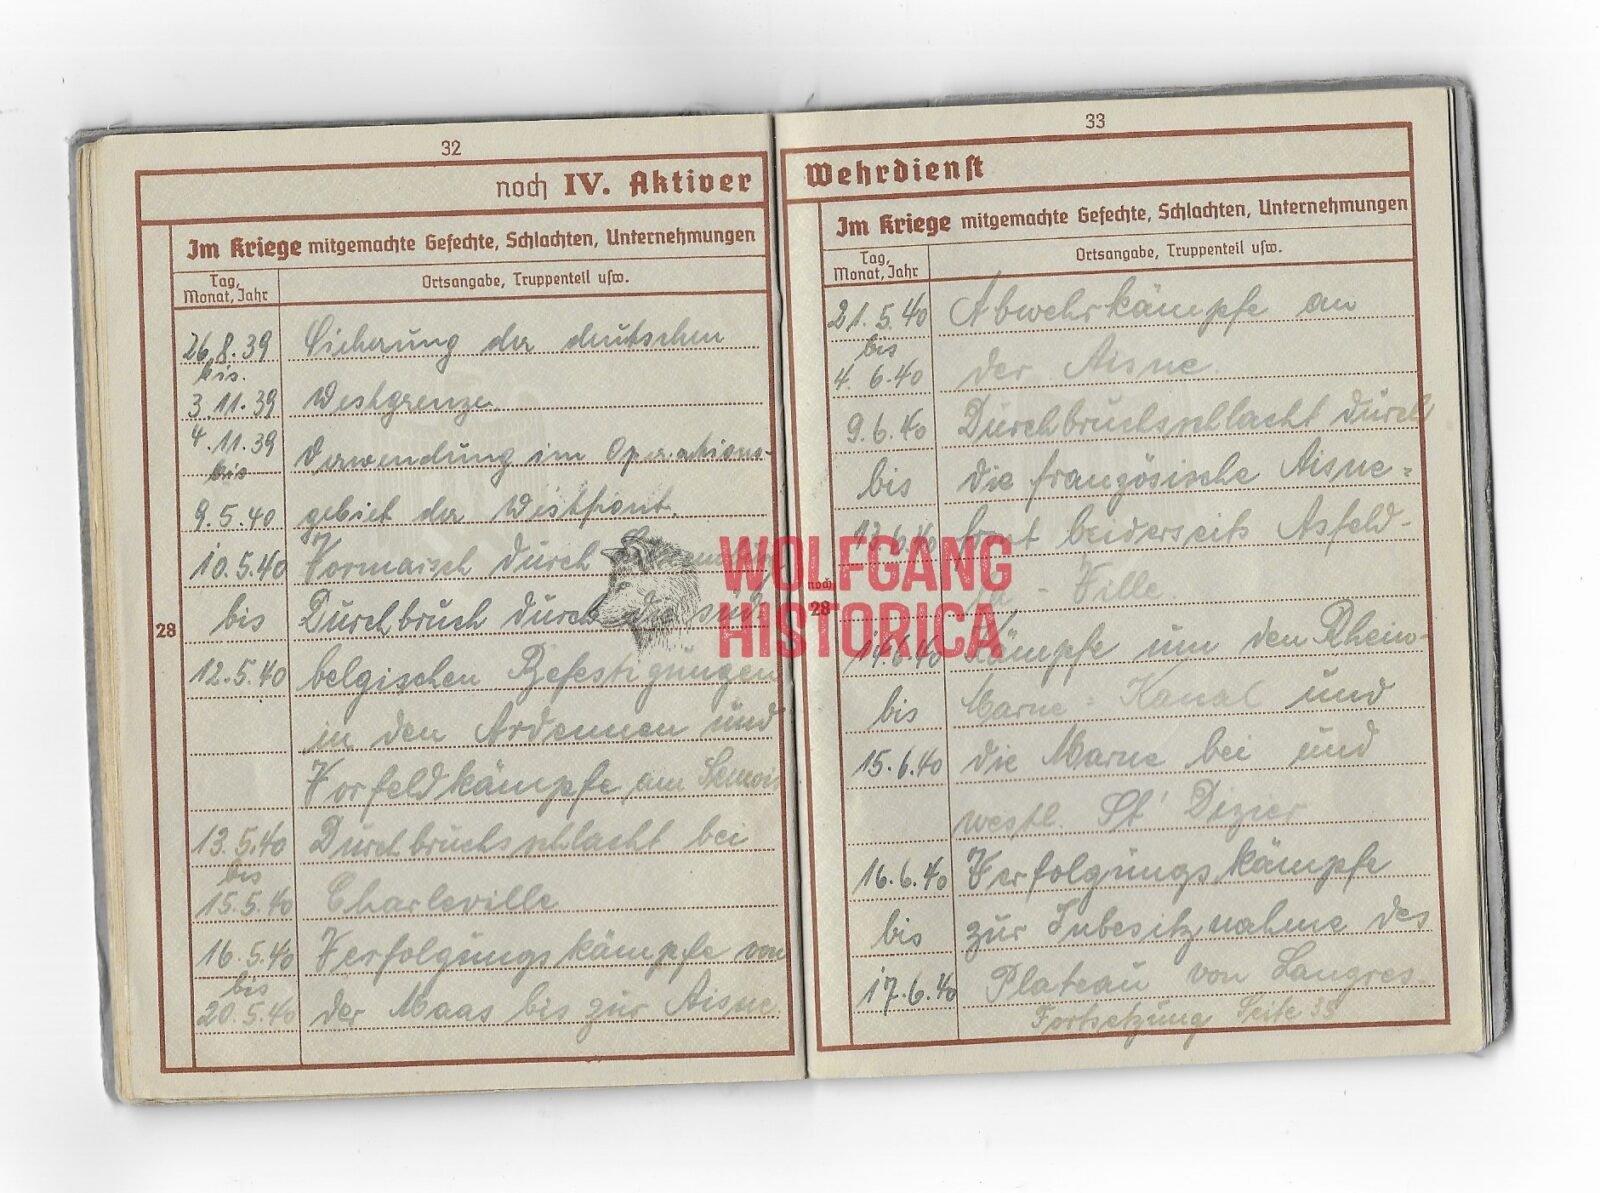 32
noch IV. Aktiver
Im Kriege mitgemachte Gefechte, Schlachten, Unternehmungen
Tag, Monat, Jahr
Ortsangabe, Truppenteil usw.
28
26.8.39 Sicherung der deutschen
bis
3.11.39 Westgrenze.
4.11.39 Verwendung im Operations-
bis
9.5.40 gebiet der Westfront.
10.5.40 Vormarsch durch
bis Durchbruch durch die süd
12.5.40 belgischen Befestigungen
in den Ardennen und
Vorfeldkämpfe am Semois
13.5.40 Durchbruchsschlacht bei
bis
15.5.40 Charleville
16.5.40 Verfolgungskämpfe von
bis
20.5.40 der Maas bis zur Aisne.
33
Wehrdienst
Im Kriege mitgemachte Gefechte, Schlachten, Unternehmungen
Tag, Monat, Jahr
Ortsangabe, Truppenteil usw.
noch
28
21.5.40 Abwehrkämpfe an
bis
4.6.40 der Aisne.
9.6.40 Durchbruchsschlacht durch
bis die französische Aisne=
13.6.40 front beiderseits Asfeld-
la - Ville.
14.6.40 Kämpfe um den Rhein-
bis Marne-Kanal und
15.6.40 die Marne bei und
westl. St' Dizier
16.6.40 Verfolgungskämpfe
bis zur Inbesitznahme des
17.6.40 Plateau von Langres.
Fortsetzung Seite 35
WOLFGANG
HISTORICA